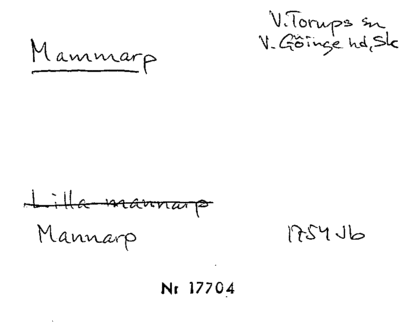 Mammarp
V. Torups sn
V. Göinge hd, Sk
Lilla mannarp
Mannarp 1754 Jb
Nr 17704